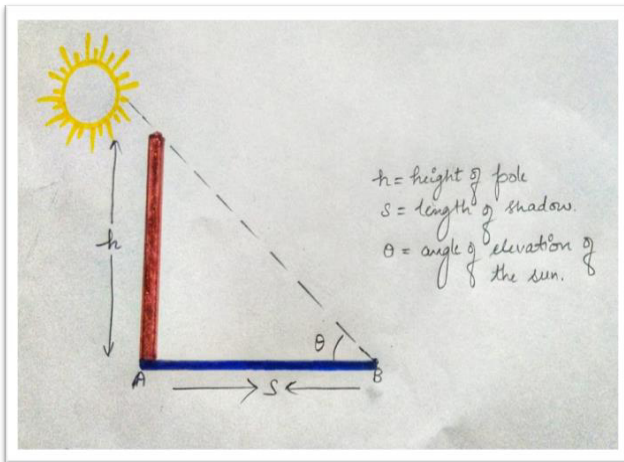 h = height of pole
S = length of shadow.
θ = angle of elevation of
the sun.
h
θ
A
B
S